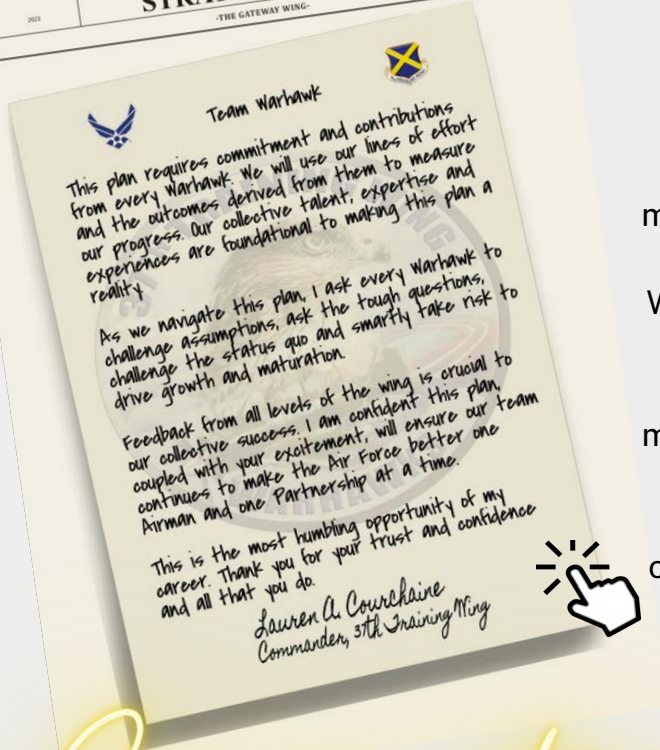 2023
-THE GATEWAY WING-
Team Warhawk
This plan requires commitment and contributions
from every Warhawk. We will use our lines of effort
and the outcomes derived from them to measure
our progress. Our collective talent, expertise and
experiences are foundational to making this plan a
reality
As we navigate this plan, I ask every Warhawk to
challenge assumptions, ask the tough questions,
challenge the status quo and smartly take risk to
drive growth and maturation.
Feedback from all levels of the wing is crucial to
our collective success. I am confident this plan,
coupled with your excitement, will ensure our team
continues to make the Air Force better one
Airman and one Partnership at a time.
This is the most humbling opportunity of my
career. Thank you for your trust and confidence
and all that you do.
Lauren A. Courchaine
Commander, 37th Training Wing